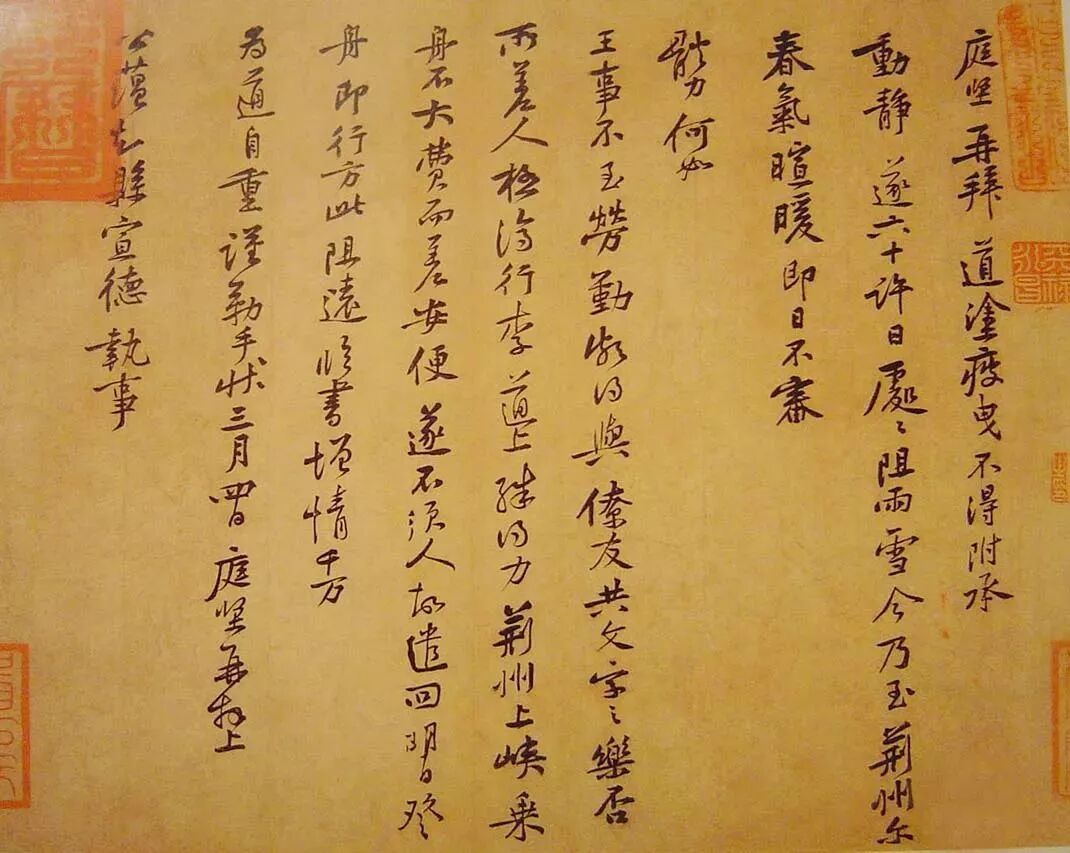 庭堅再拜 道塗疲曳不得附承
動靜 遂六十許日處〻阻雨雪今乃至荊州爾
春氣暄暖即日不審
體力何如
王事不至勞勤頗得與僚友共文字之樂否
所差人極濟行李道上殊得力荊州上峽乘
舟不大費而差安便遂不須人故遣回明日登
舟即行方此阻遠臨書增情千万
為道自重謹勒手狀三月四日庭堅再拜上
公蘊知縣宣德執事